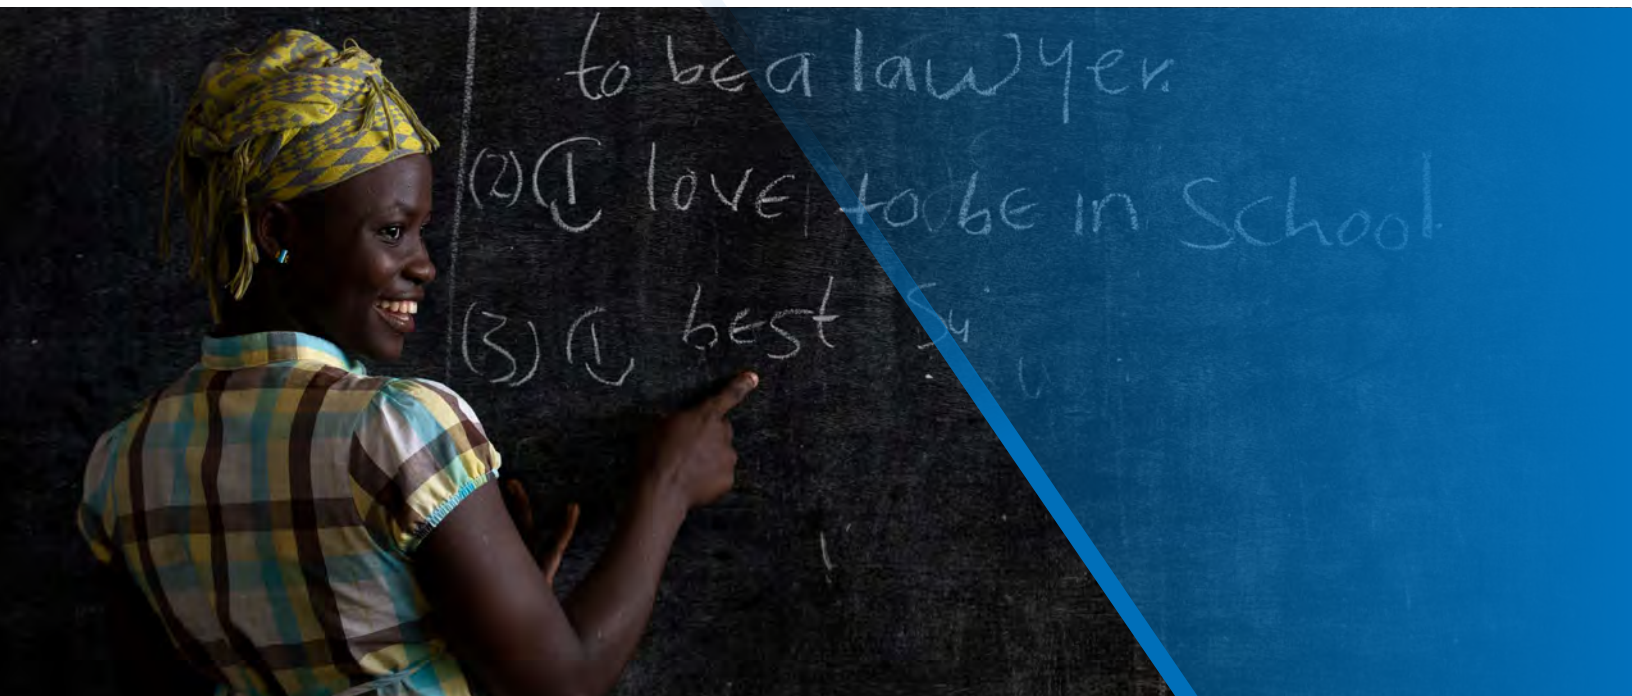 to be a lawyer.
(2) I love to be in School.
(3) I best